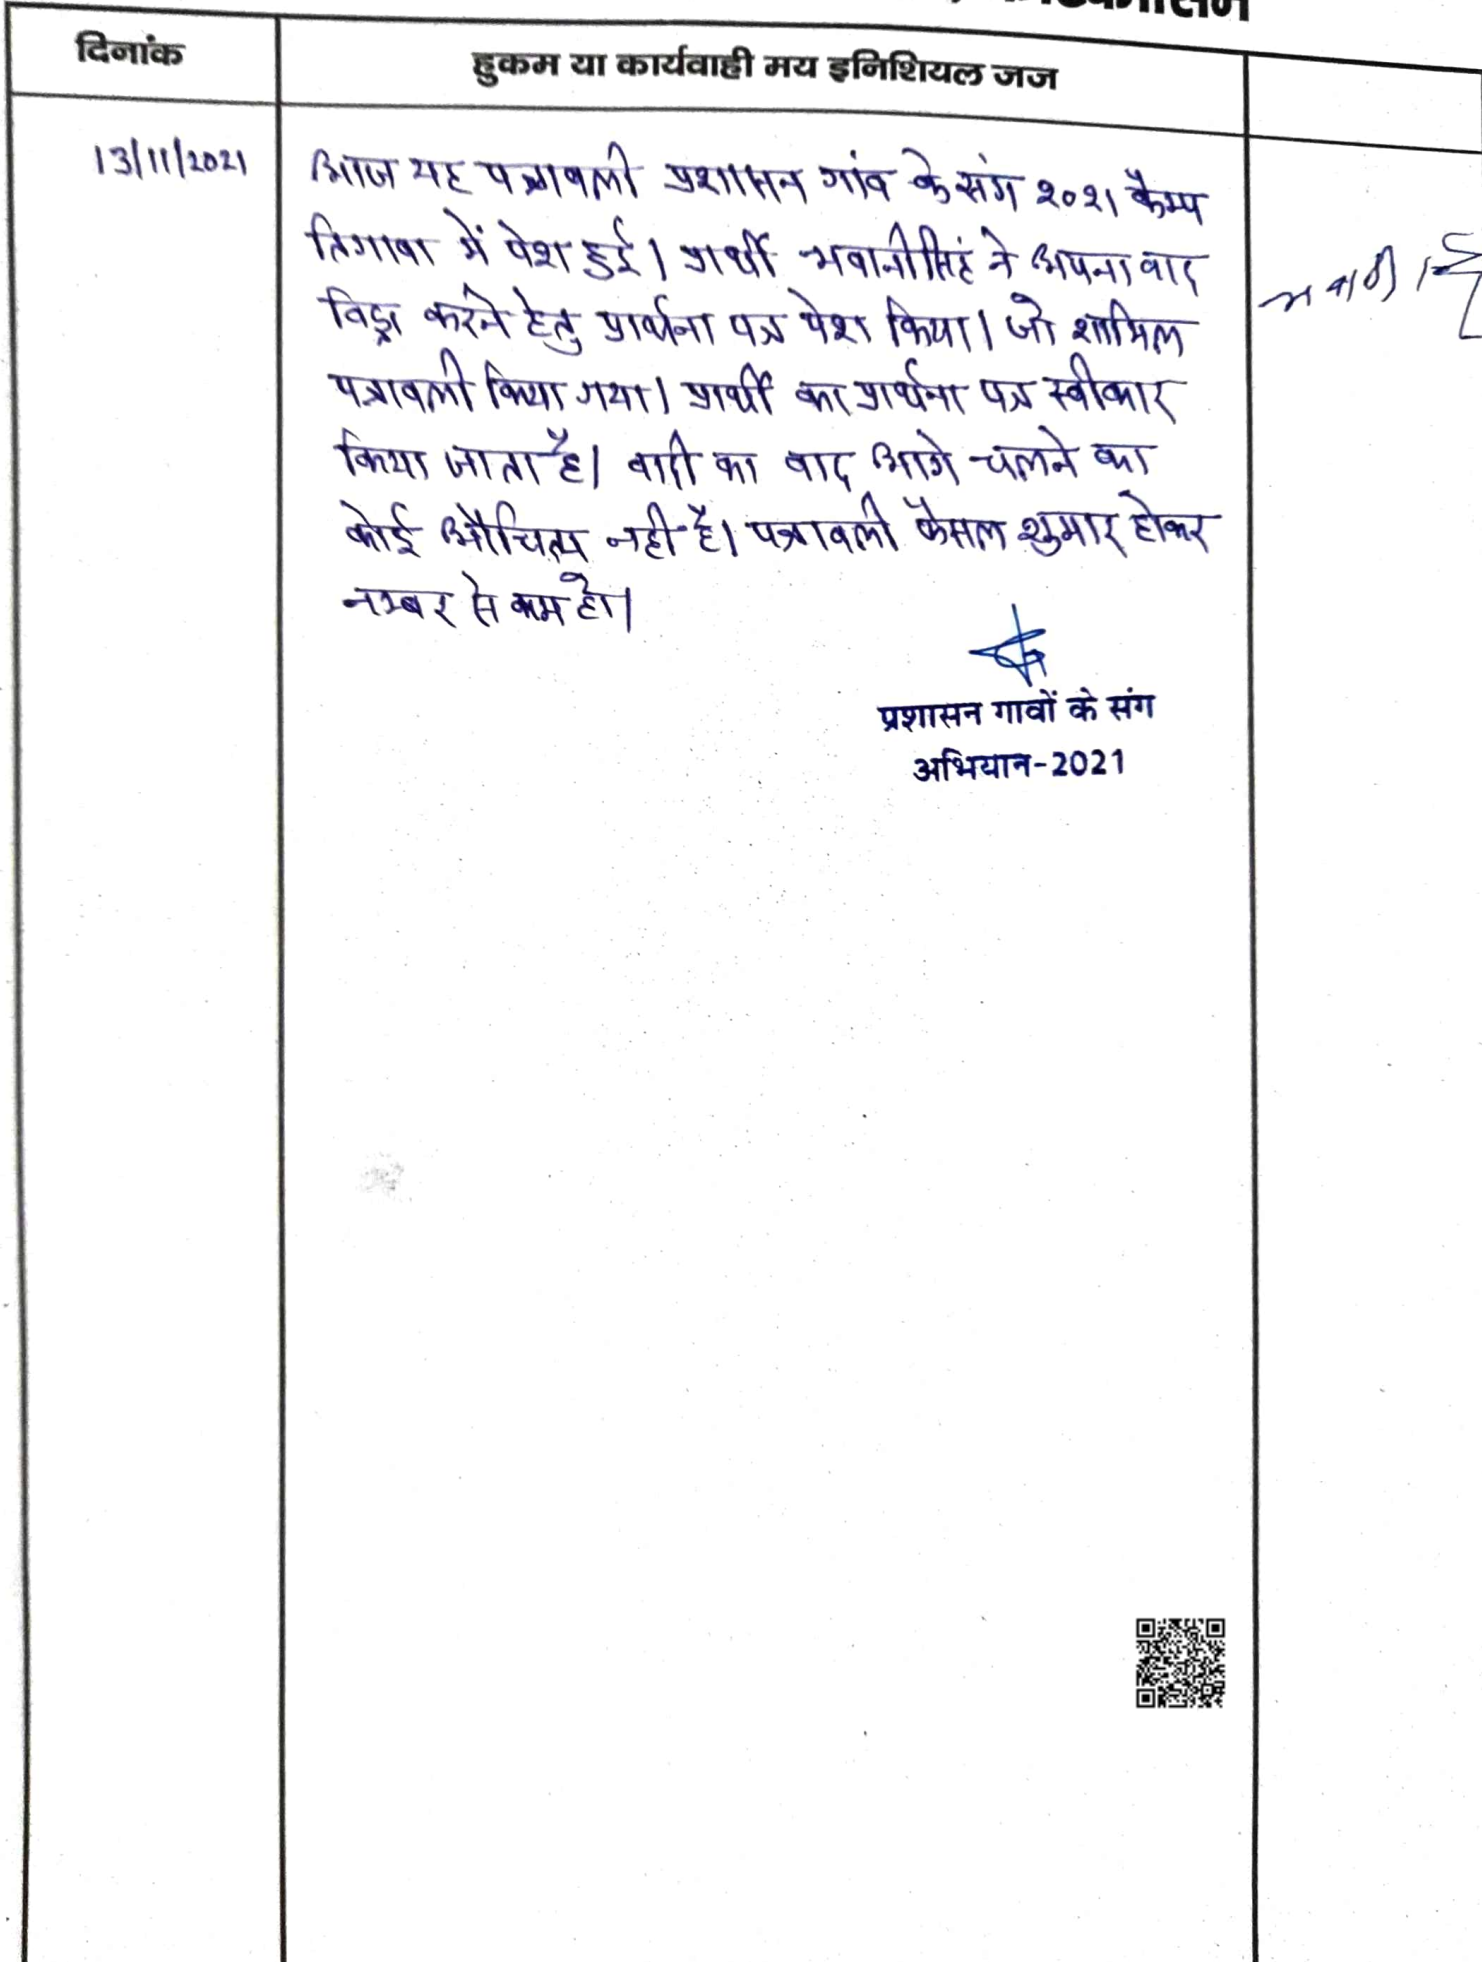 दिनांक
हुकम या कार्यवाही मय इनिशियल जज
13/11/2021
आज यह पत्रावली प्रशासन गांव के संग २०२१ कैम्प
तिगावा में पेश हुई। प्रार्थी भवानीसिंह ने अपना वाद
विड्रा करने हेतु प्रार्थना पत्र पेश किया। जो शामिल
पत्रावली किया गया। प्रार्थी का प्रार्थना पत्र स्वीकार
किया जाता है। वादी का वाद आगे चलने का
कोई औचित्य नही है। पत्रावली फैसल शुमार होकर
नम्बर से कम हो।
प्रशासन गावों के संग
अभियान-2021